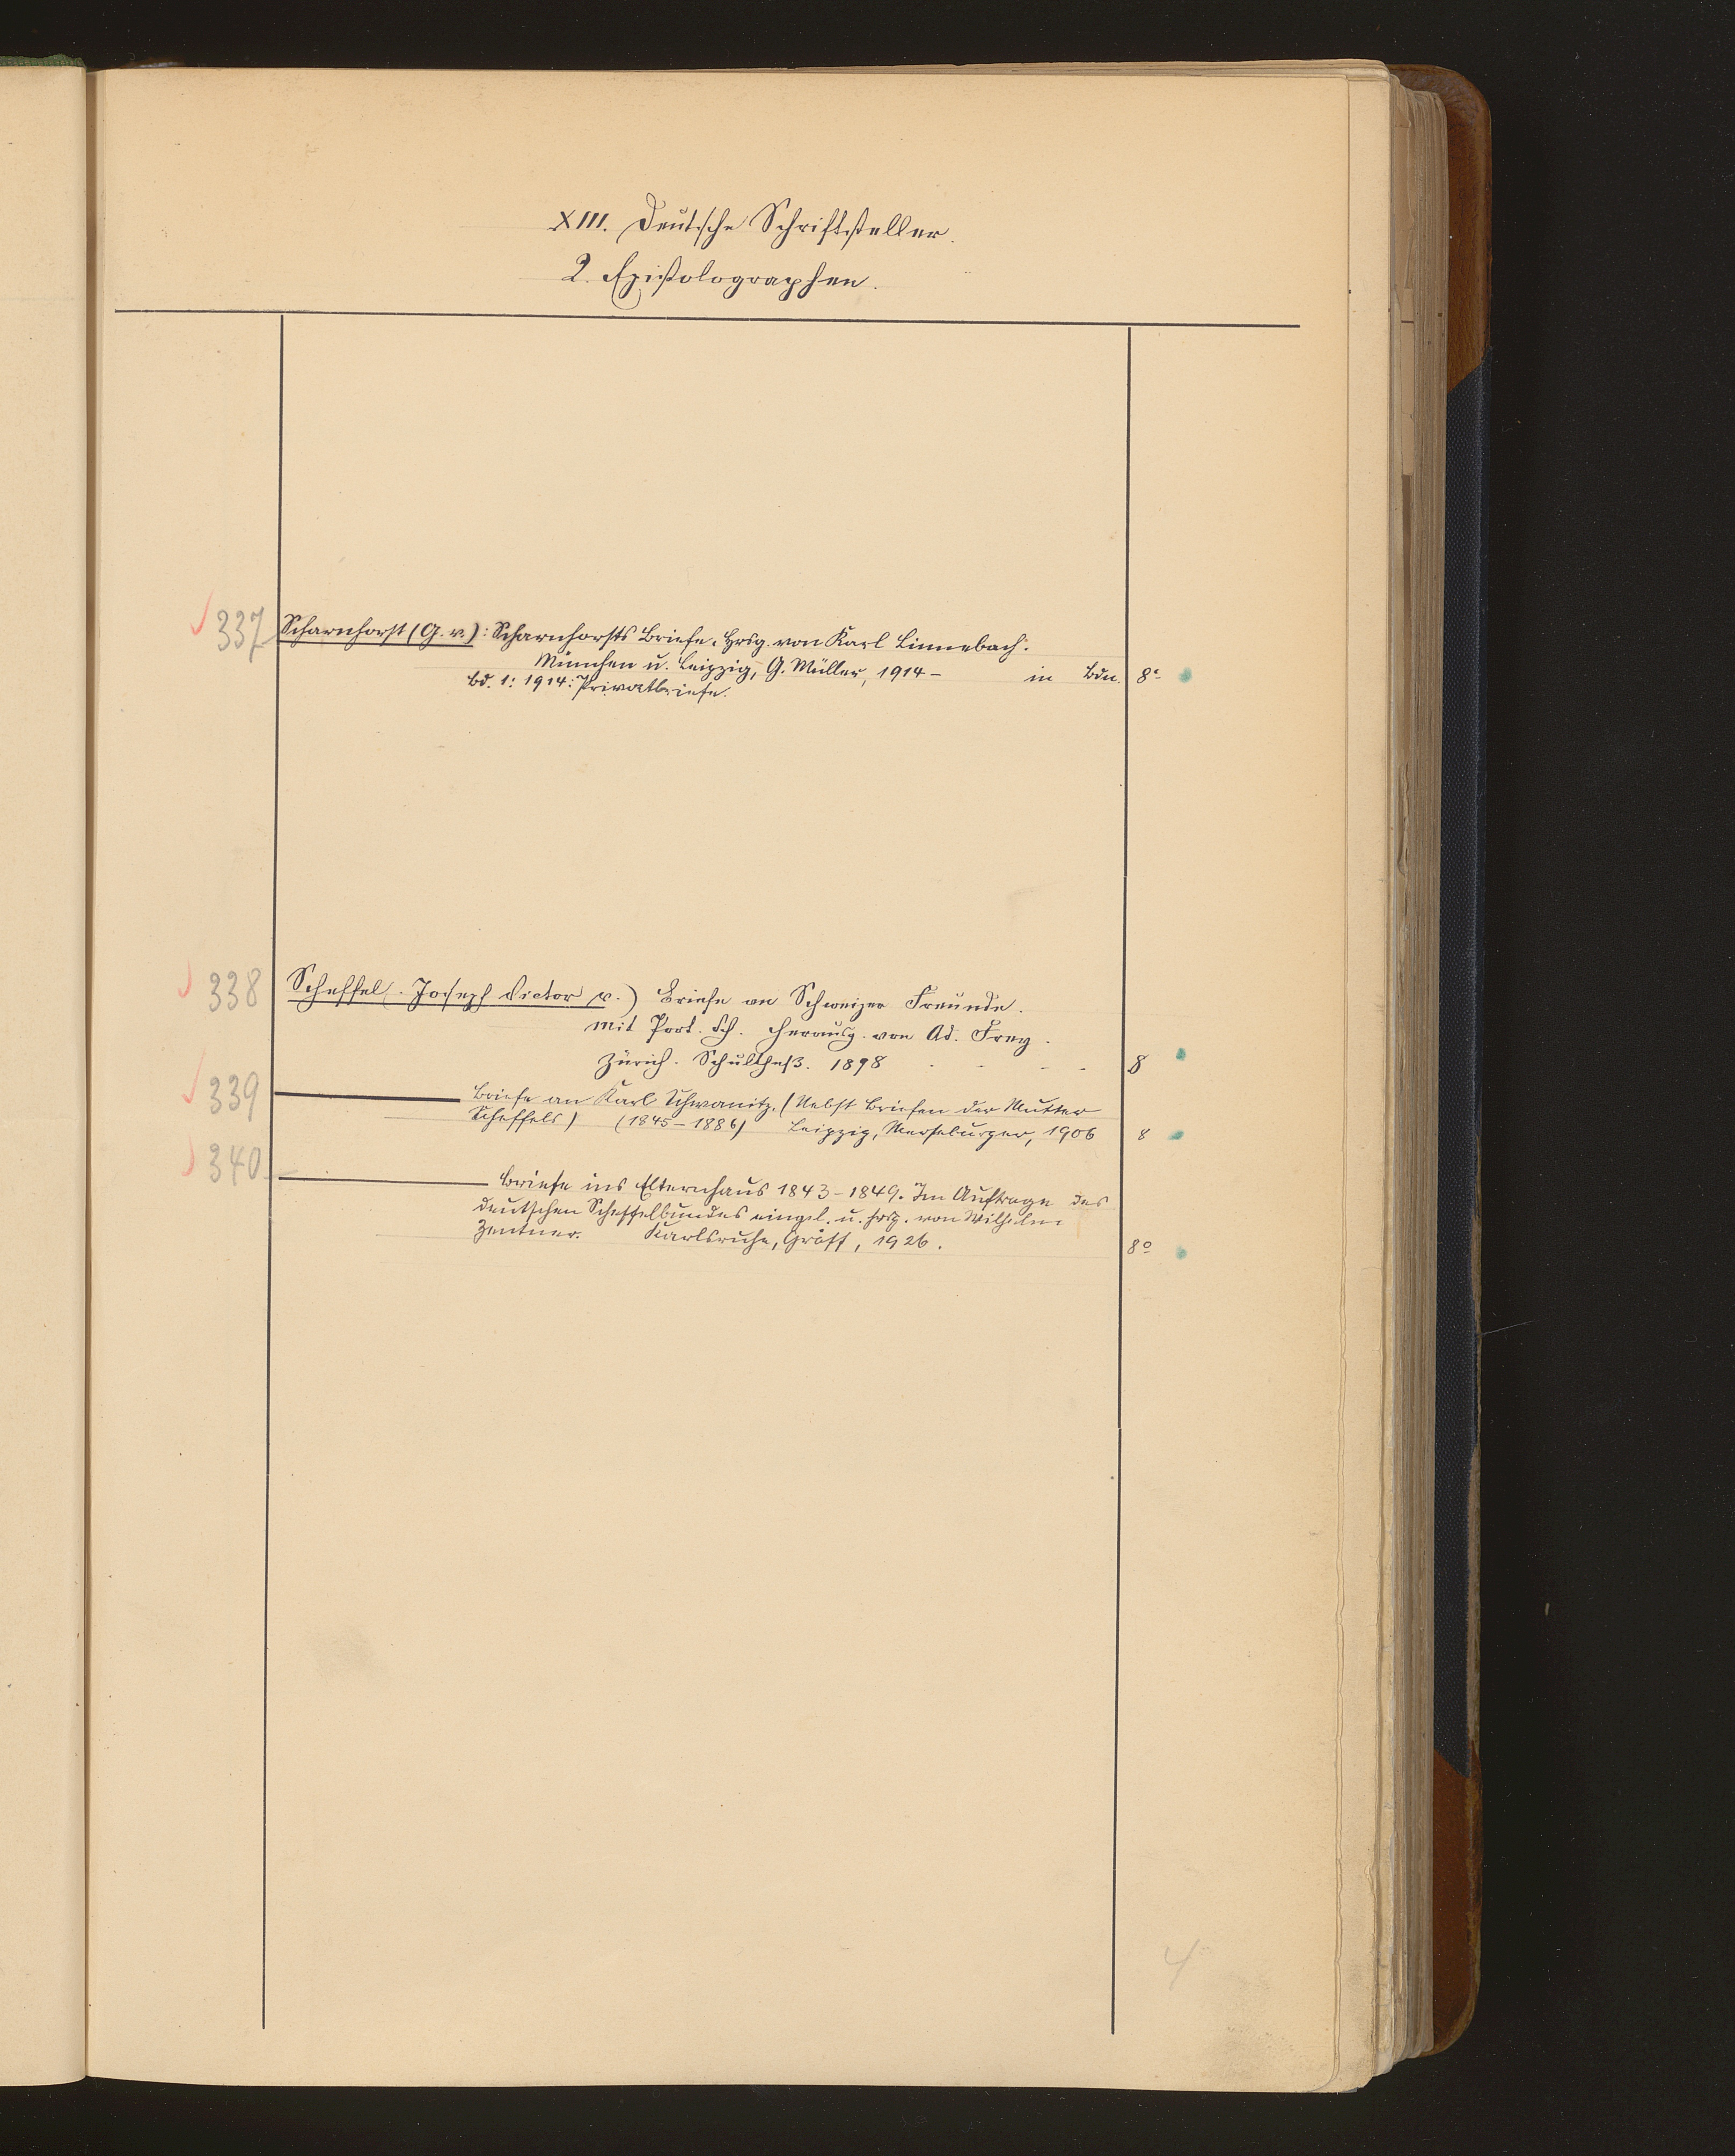 XIII. Deutsche Schriftsteller.
2. Epistolographen.
337 Scharnhorst (G. v.): Scharnhorsts Briefe. Hrsg. von Karl Linnebach.
München u. Leipzig, G. Müller, 1914– in Bdn. 8°
Bd. 1: 1914: Privatbriefe.
338 Scheffel (Joseph Victor v.) Briefe an Schweizer Freunde.
Mit Port. Sch. Herausg. von Ad. Frey.
Zürich. Schultheß. 1898 8
339 Briefe an Karl Schwanitz. (Nebst Briefen der Mutter
Scheffels) (1845–1886) Leipzig, Merseburger, 1906 8
340 Briefe ins Elternhaus 1843–1849. Im Auftrage des
deutschen Scheffelbundes eingel. u. hrsg. von Wilhelm
Zentner. Karlsruhe, Gräff, 1926. 8°
4